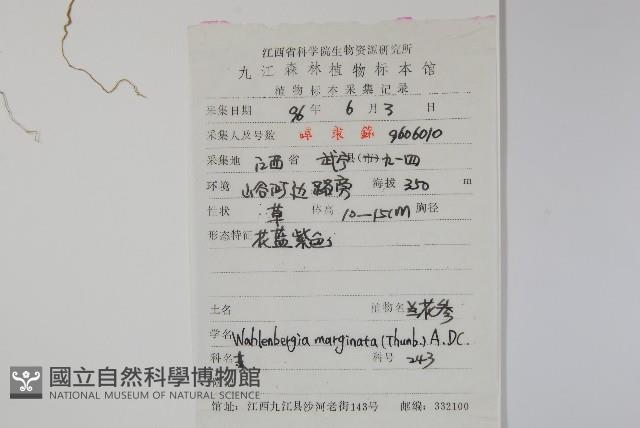 江西省科学院生物资源研究所
九江森林植物标本馆
植物标本采集记录
采集日期 96 年 6 月 3 日
采集人及号数 9606010
采集地 江西 省 武宁 县(市) 九一四
环境 山谷河边路旁 海拔 350 m
性状 草 体高 10—15cm 胸径
形态特征 花蓝紫色
土名 植物名 兰花参
学名 Wahlenbergia marginata (Thunb.) A.DC.
科名 科号 243
國立自然科學博物館
NATIONAL MUSEUM OF NATURAL SCIENCE
馆址：江西九江县沙河老街143号 邮编：332100